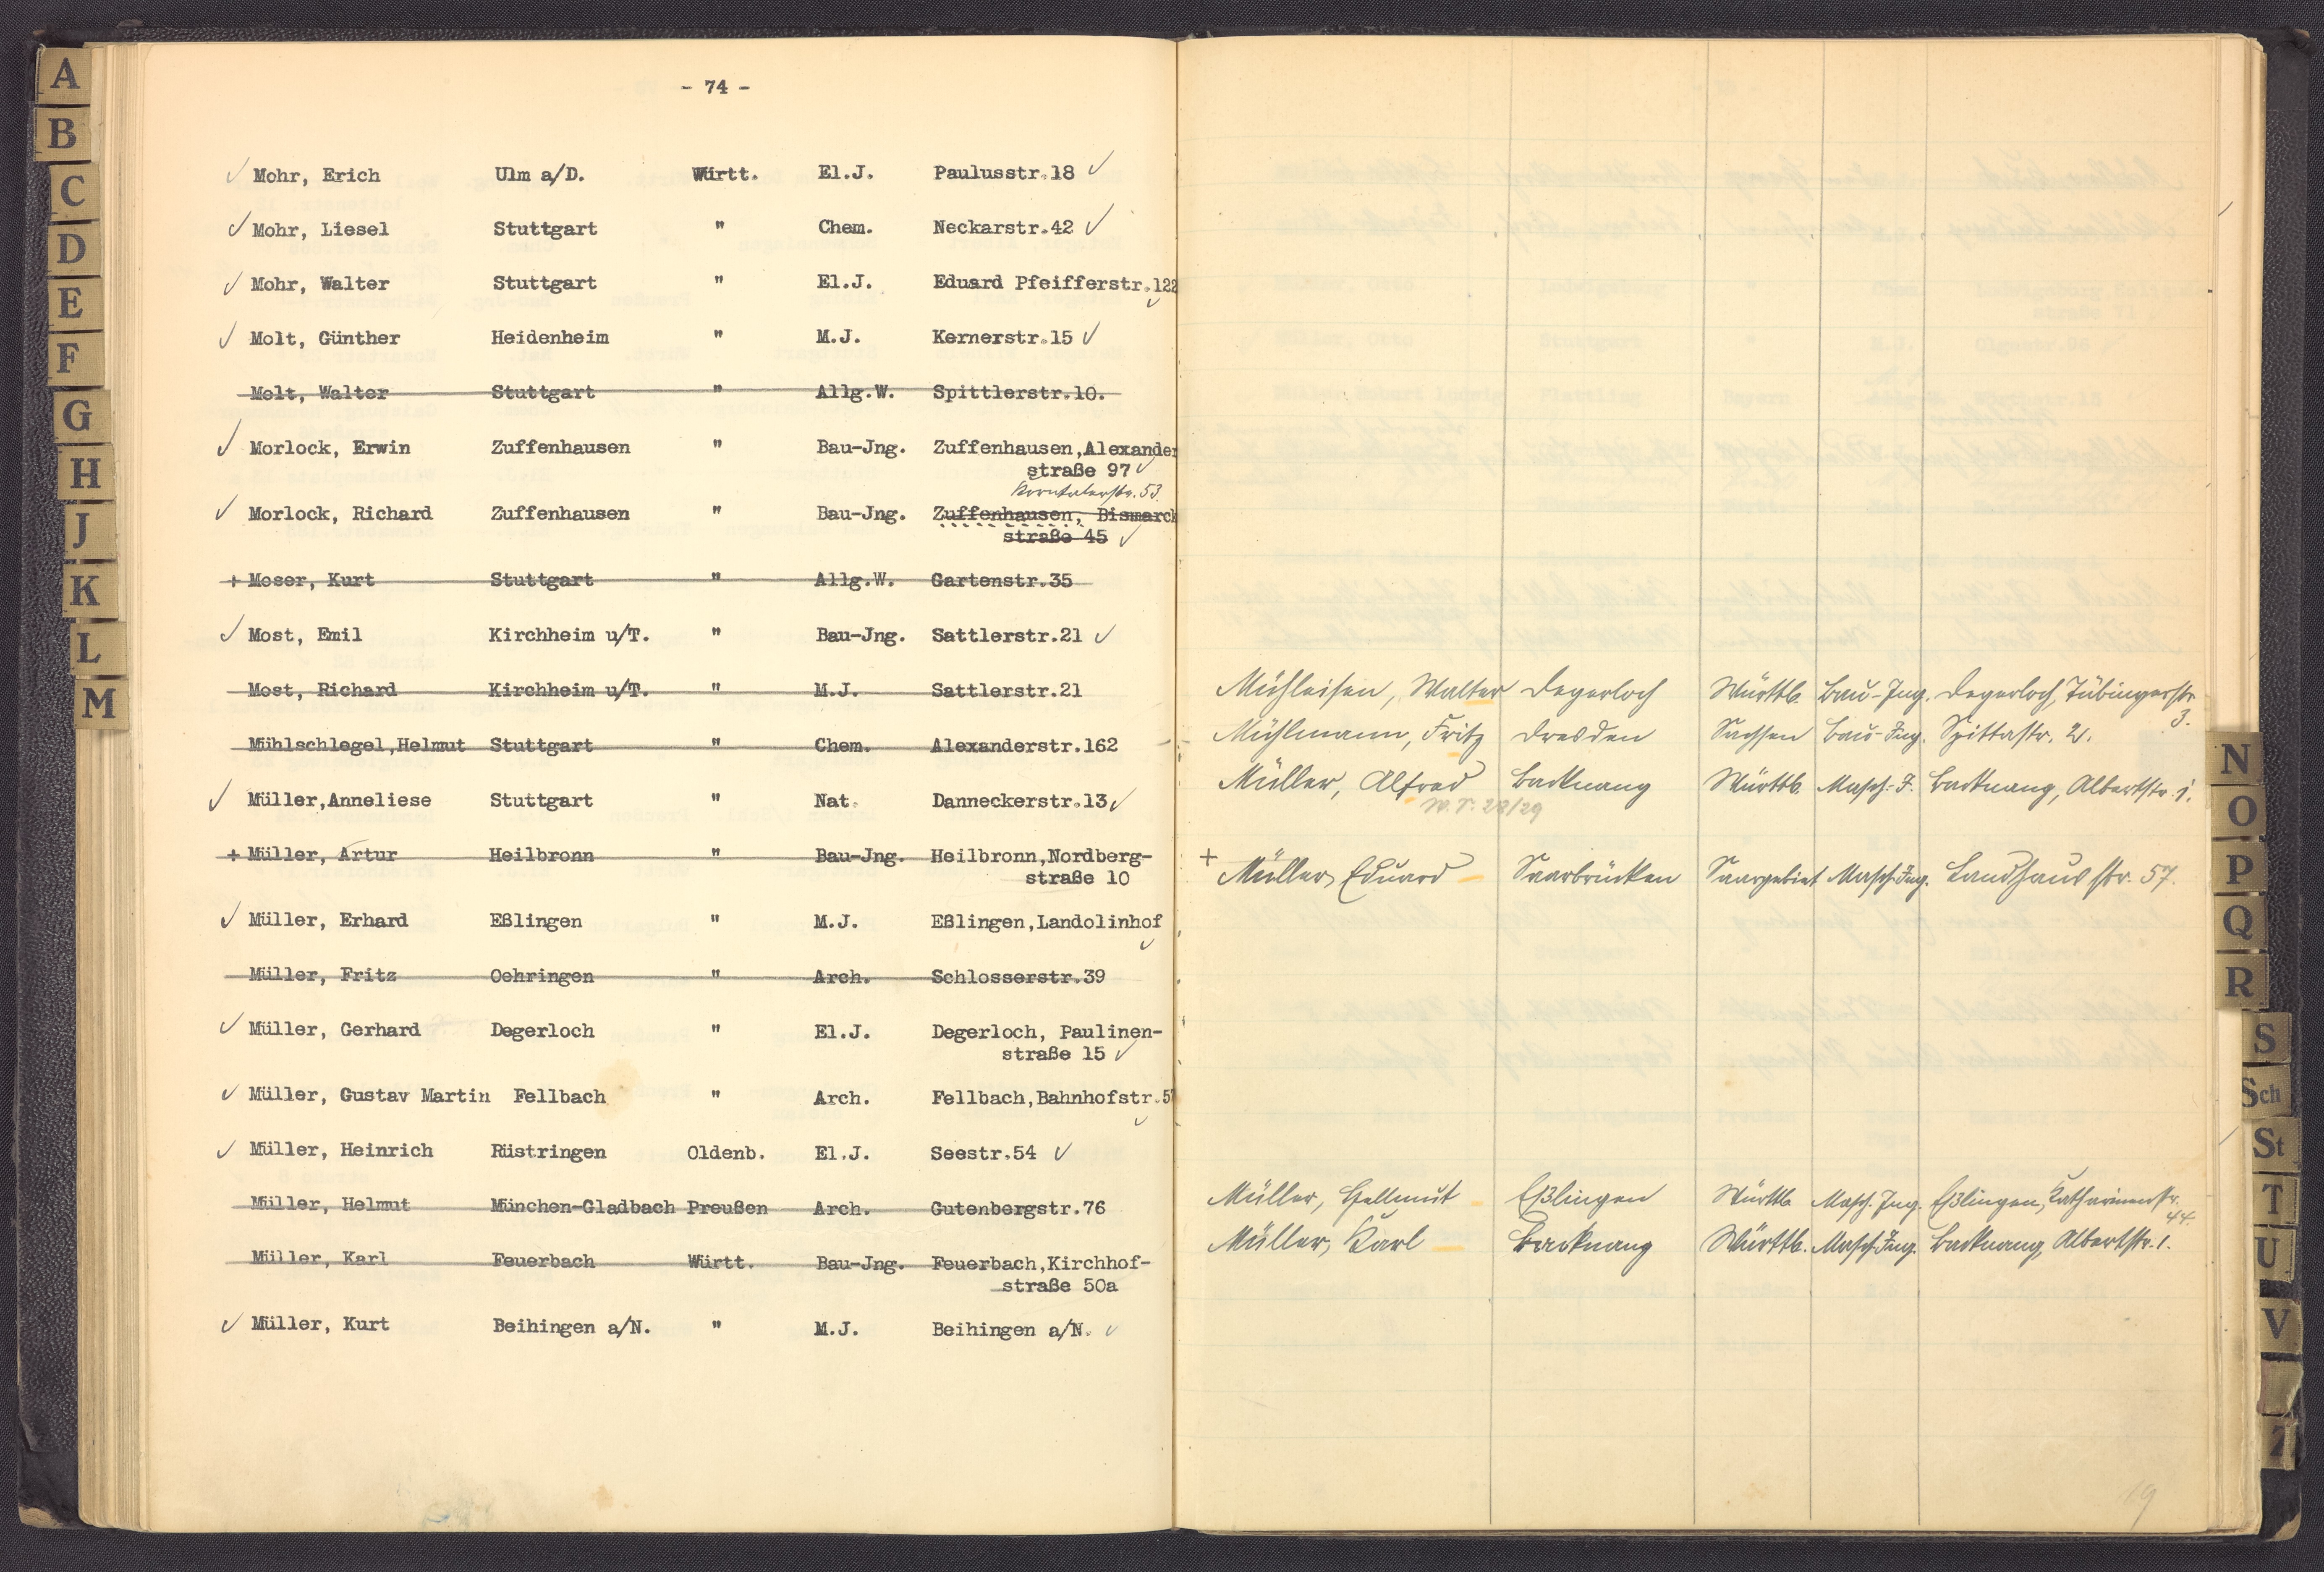 A
B
C
D
E
F
G
H
J
K
L
M
- 74 -
Mohr, Erich Ulm a/D. Württ. El.J. Paulusstr.18
Mohr, Liesel Stuttgart " Chem. Neckarstr.42
Mohr, Walter Stuttgart " El.J. Eduard Pfeifferstr.122
Molt, Günther Heidenheim " M.J. Kernerstr.15
Molt, Walter Stuttgart " Allg.W. Spittlerstr.10.
Morlock, Erwin Zuffenhausen " Bau-Jng. Zuffenhausen,Alexander
straße 97
Korntalerstr. 53.
Morlock, Richard Zuffenhausen " Bau-Jng. Zuffenhausen, Bismarck
straße 45
+ Moser, Kurt Stuttgart " Allg.W. Gartenstr.35
Most, Emil Kirchheim u/T. " Bau-Jng. Sattlerstr.21
Most, Richard Kirchheim u/T. " M.J. Sattlerstr.21
Mühlschlegel,Helmut Stuttgart " Chem. Alexanderstr.162
Müller,Anneliese Stuttgart " Nat. Danneckerstr.13
+ Müller, Artur Heilbronn " Bau-Jng. Heilbronn,Nordberg-
straße 10
Müller, Erhard Eßlingen " M.J. Eßlingen,Landolinhof
Müller, Fritz Oehringen " Arch. Schlosserstr.39
Müller, Gerhard Degerloch " El.J. Degerloch, Paulinen-
straße 15
Müller, Gustav Martin Fellbach " Arch. Fellbach,Bahnhofstr.5
Müller, Heinrich Rüstringen Oldenb. El.J. Seestr.54
Müller, Helmut München-Gladbach Preußen Arch. Gutenbergstr.76
Müller, Karl Feuerbach Württ. Bau-Jng. Feuerbach,Kirchhof-
straße 50a
Müller, Kurt Beihingen a/N. " M.J. Beihingen a/N.
Mühleisen, Walter Degerloch Württb. Bau-Ing. Degerloch, Tübingerstr.
3.
Mühlmann, Fritz Dresden Sachsen Bau-Ing. Spittastr. 2.
Müller, Alfred Backnang Württb. Masch.-I. Backnang, Albertstr. 1.
W.S. 28/29
+ Müller, Eduard Saarbrücken Saargebiet Masch.Ing. Landhausstr. 57.
Müller, Hellmut Eßlingen Württb Masch. Ing. Eßlingen, Katharinenstr.
44.
Müller, Karl Backnang Württb. Masch.Ing. Backnang, Albertstr. 1.
19
N
O
P
Q
R
S
Sch
St
T
U
V
Z